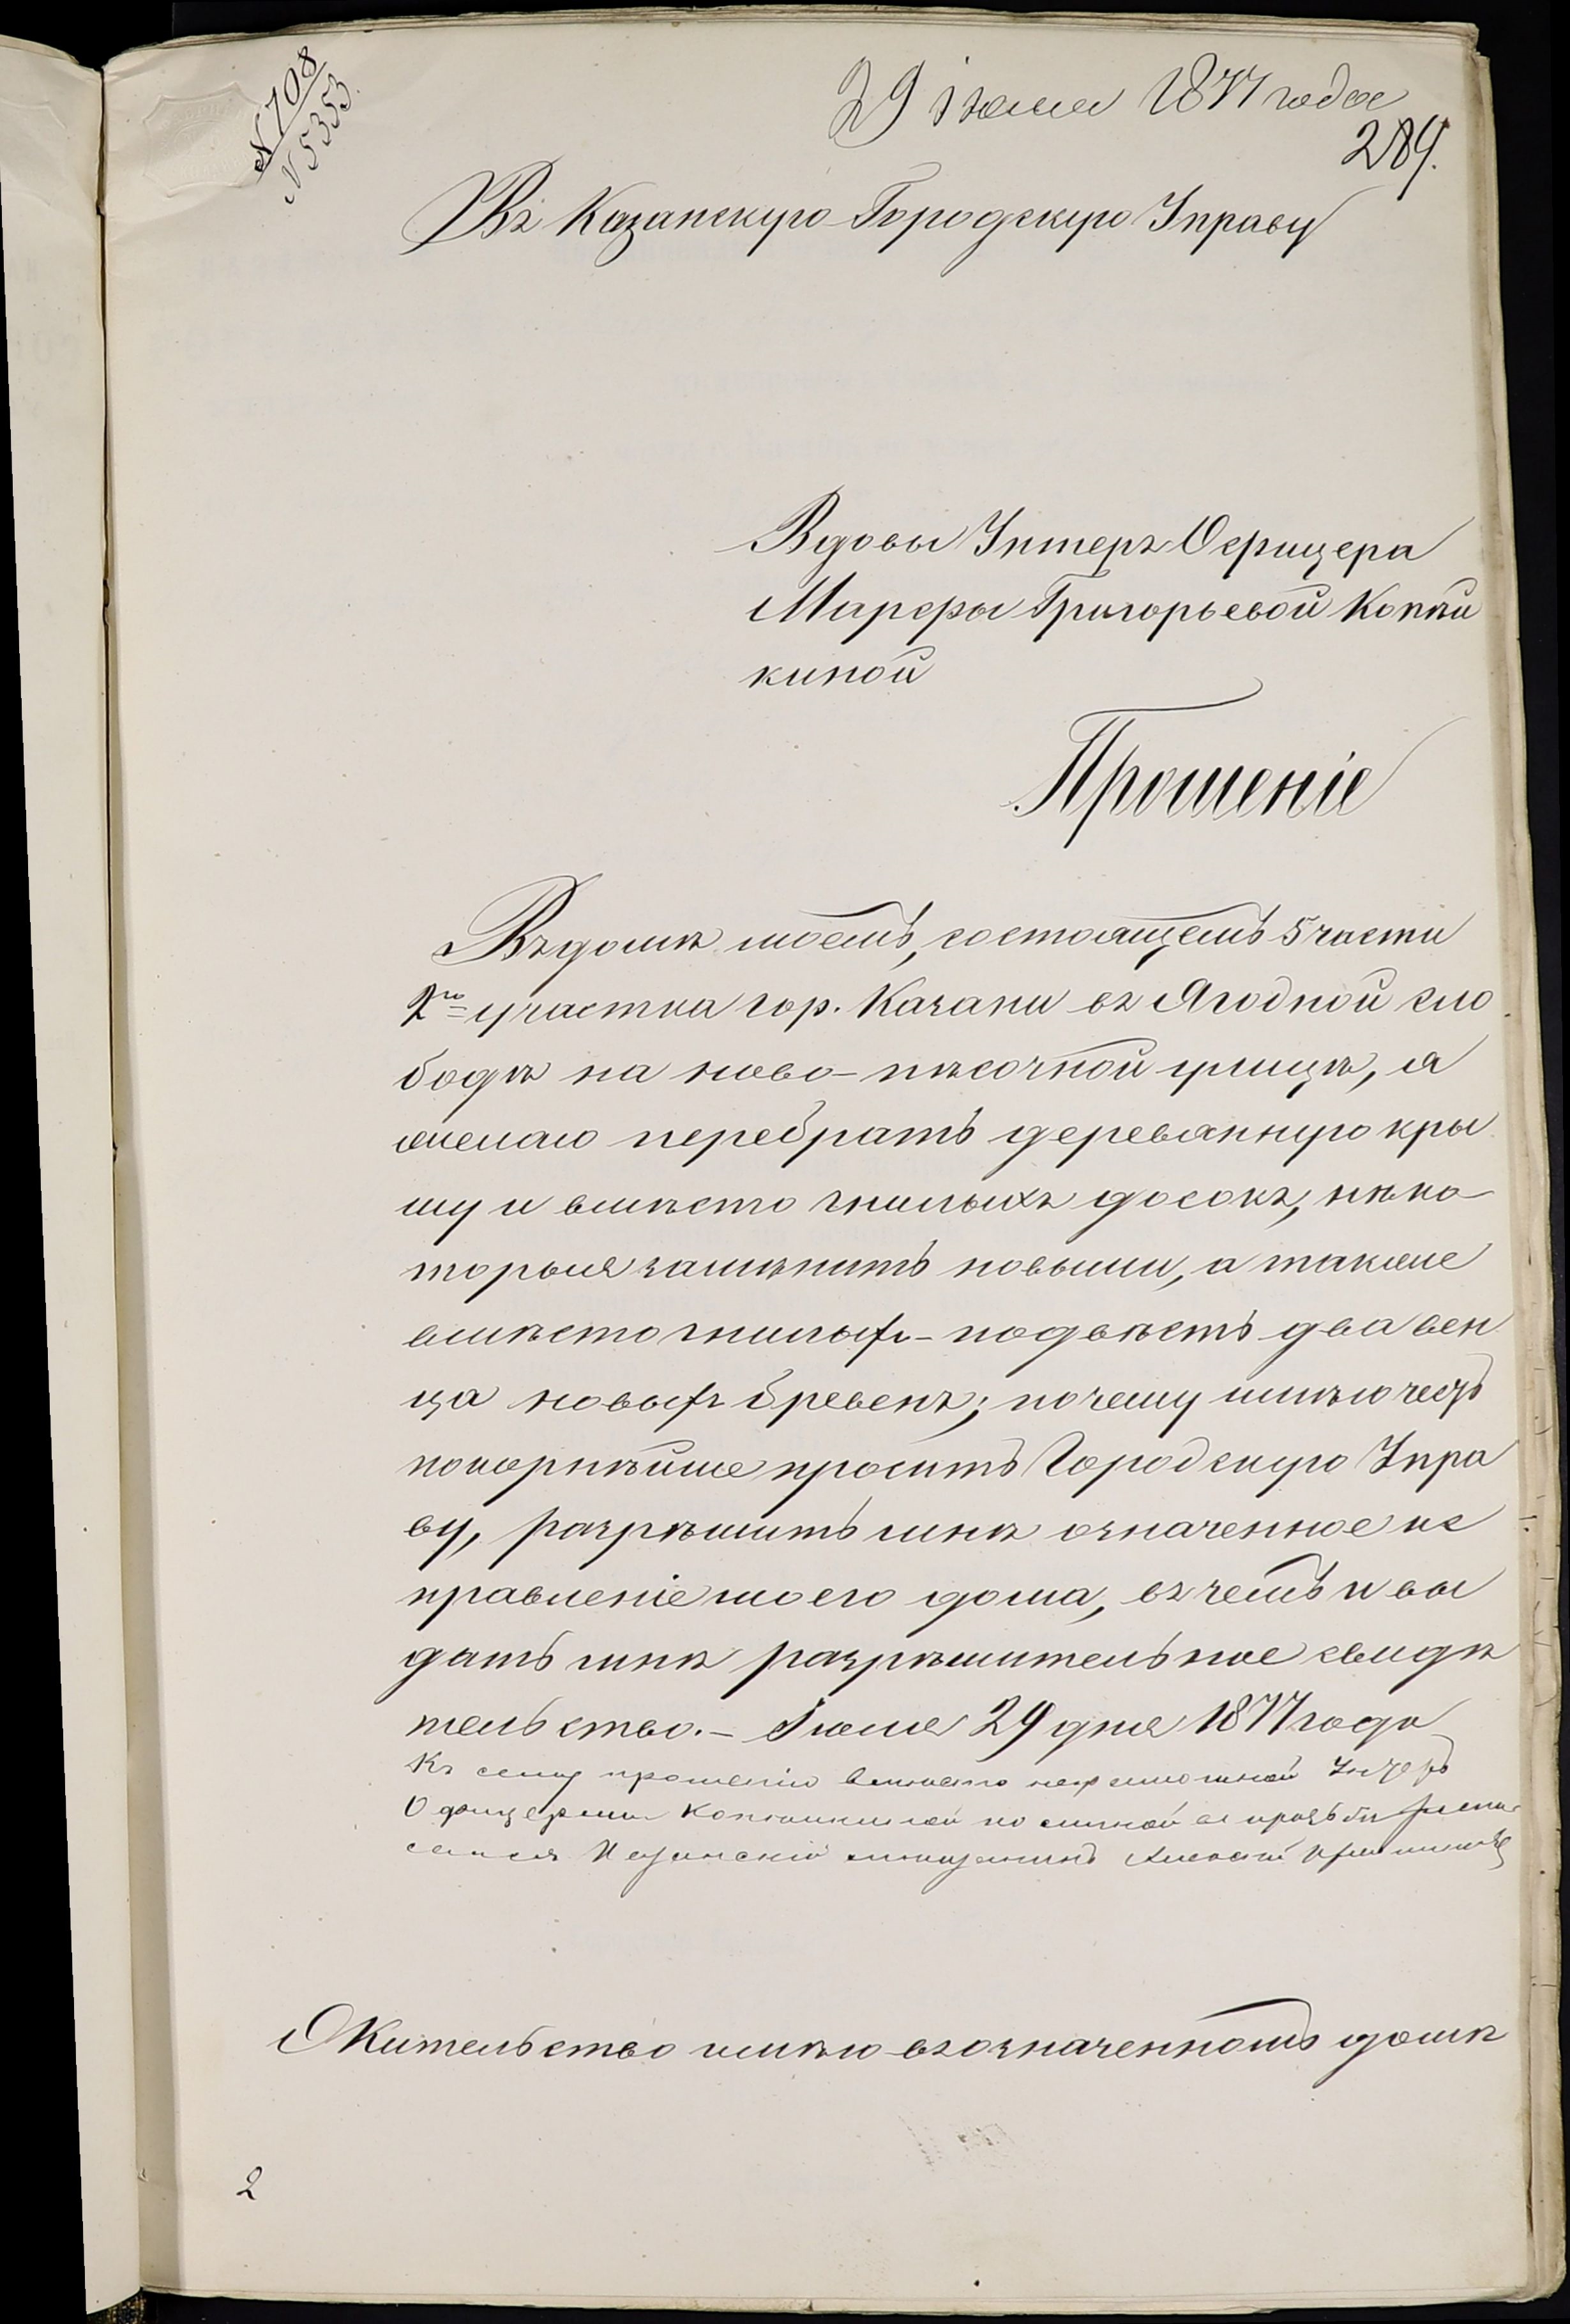 № 708
№ 5353.
29 Іюля 1877 года
289.
Въ Казанскую Городскую Управу
Вдовы Унтеръ Офицера
Марфы Григорьевой Копти
киной
Прошеніе
Въ домѣ моемъ, состоящемъ 5 части
2го участка гор. Казани въ Ягодной сло
бодѣ на ново-пѣсочной улицѣ, я
желаю перебрать деревянную кры
шу и вмѣсто гнилыхъ досокъ, нѣко-
торыя замѣнить новыми, а также
вмѣсто гнилыхъ - подвѣсть два вен
ца новыхъ бревенъ; почему имѣю честь
покорнѣйше просить Городскую Упра
ву, разрѣшить мнѣ означенное ис
правленіе моего дома, въ чемъ и вы
дать мнѣ разрѣшительное свидѣ
тельство.- Іюля 29 дня 1877 года
Къ сему прошенію вмѣсто неграмотной Унтеръ
Офицерши по личной ея прозьбѣ распи
сался Казанскій мещанинъ Алексѣй
Жительство имѣю въ означенномъ домѣ
2